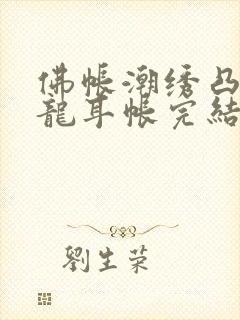 佛帐潮绣凸
龍耳帐完結
劉生荣